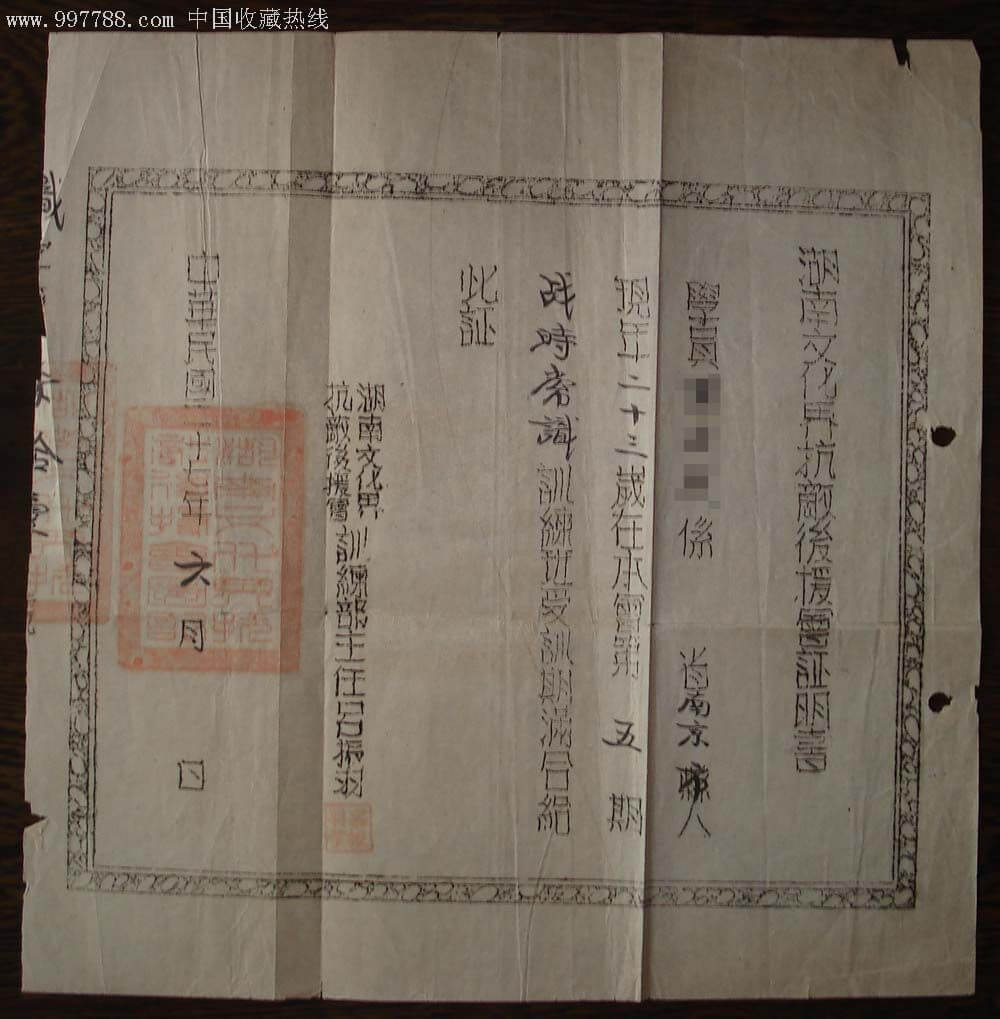 www.997788.com 中国收藏热线
湖南文化界抗敵後援會証明書
學員 係 省南京縣人
現年二十三歲在本會第五期
战時常識訓練班受訓期滿合給
此証
湖南文化界
抗敵後援會
訓練部主任呂振羽
中華民國二十七年六月 日